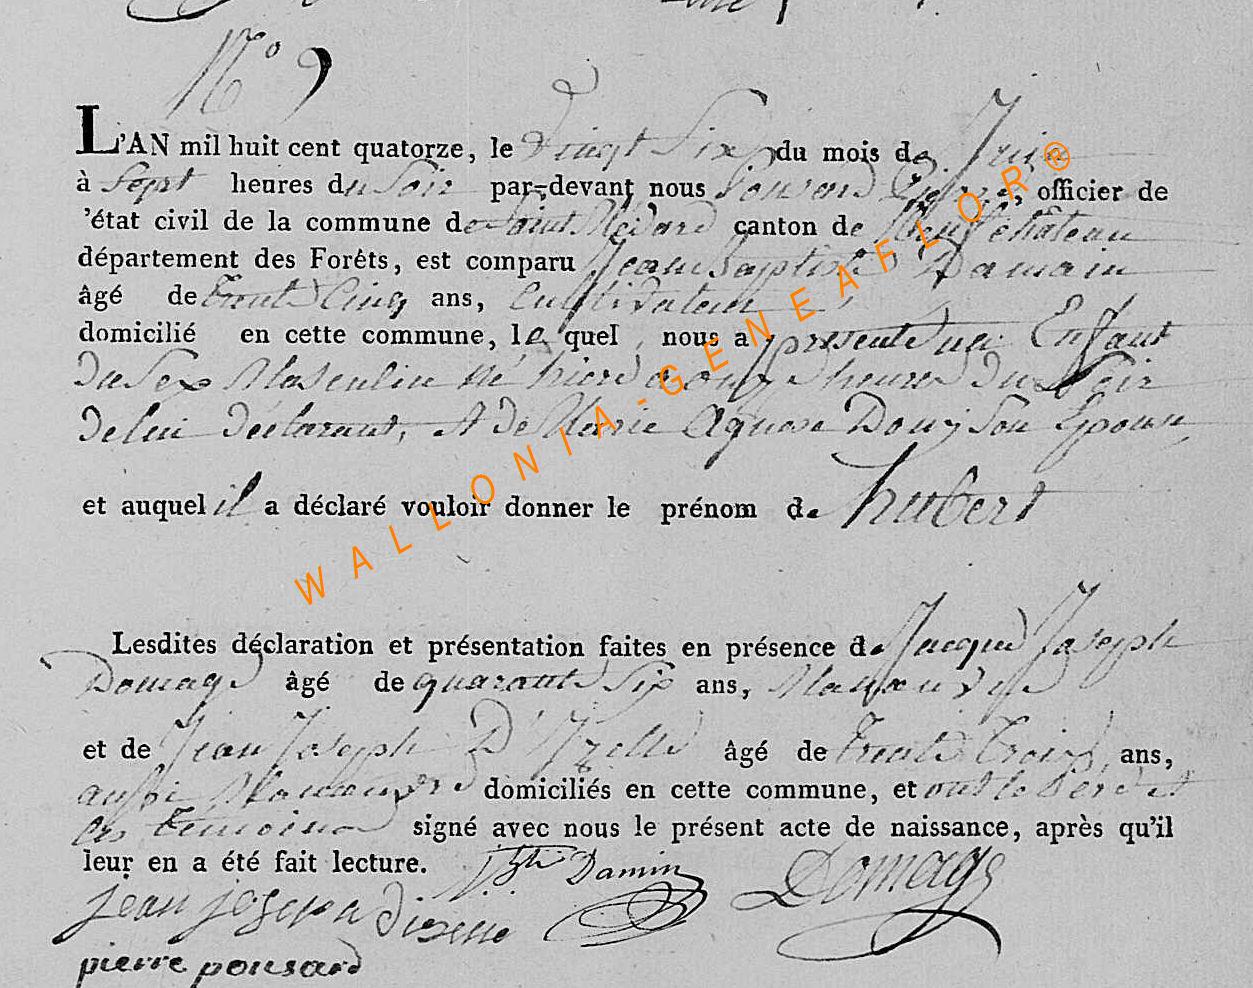 N.º 9
L'AN mil huit cent quatorze, le Vingt Six du mois de Juin
à Sept heures du Soir par-devant nous Ponsard Pierre, officier de
'état civil de la commune de Saint Médard canton de Neufchâteau
département des Forêts, est comparu Jean Baptiste Damain
âgé de Trente Cinq ans, Cultivateur
domicilié en cette commune, le quel nous a présenté un Enfant
du Sexe Masculin né hier à onze heures du Soir
de lui déclarant, et de Marie Agnese Douny Son Epouse
et auquel il a déclaré vouloir donner le prénom de hubert
Lesdites déclaration et présentation faites en présence de Jacque Joseph
Domage âgé de quarante Six ans, Manœuvre
et de Jean Joseph D'Izelle âgé de Trente Trois ans,
aussi Manœuvre domiciliés en cette commune, et ont le Père et
les Temoins signé avec nous le présent acte de naissance, après qu'il
leur en a été fait lecture. J. Bte Damin Domage
jean joseph dizelle
pierre ponsard
WALLONIA-GENEAFLOR®